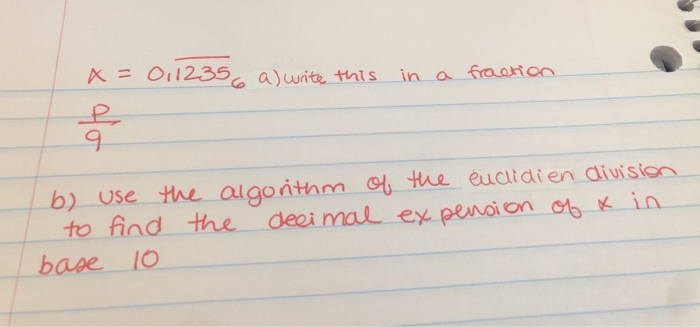 x = 0,1235₆ a) write this in a fraction
p
q
b) use the algorithm of the euclidien division
to find the decimal expension of x in
base 10